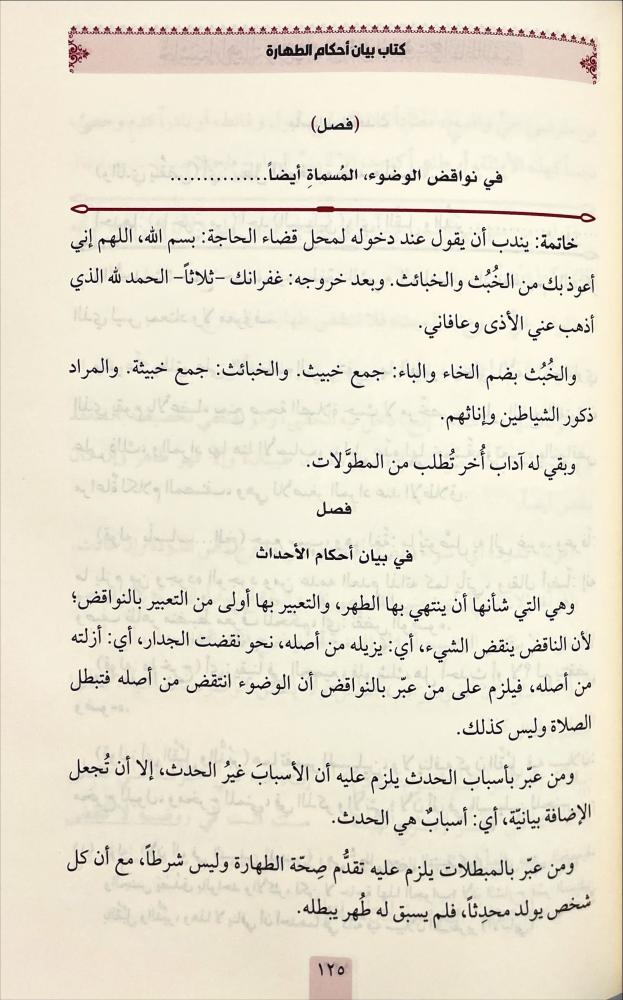 كتاب بيان أحكام الطهارة
(فصل)
في نواقض الوضوء، المُسماةِ أيضاً...............
خاتمة: يندب أن يقول عند دخوله لمحل قضاء الحاجة: بسم الله، اللهم إني
أعوذ بك من الخُبُث والخبائث. وبعد خروجه: غفرانك -ثلاثاً- الحمد لله الذي
أذهب عني الأذى وعافاني.
والخُبُث بضم الخاء والباء: جمع خبيث. والخبائث: جمع خبيثة. والمراد
ذكور الشياطين وإناثهم.
وبقي له آداب أُخر تُطلب من المطوَّلات.
فصل
في بيان أحكام الأحداث
وهي التي شأنها أن ينتهي بها الطهر، والتعبير بها أولى من التعبير بالنواقض؛
لأن الناقض ينقض الشيء، أي: يزيله من أصله، نحو نقضت الجدار، أي: أزلته
من أصله، فيلزم على من عبّر بالنواقض أن الوضوء انتقض من أصله فتبطل
الصلاة وليس كذلك.
ومن عبّر بأسباب الحدث يلزم عليه أن الأسبابَ غيرُ الحدث، إلا أن تُجعل
الإضافة بيانيّة، أي: أسبابٌ هي الحدث.
ومن عبّر بالمبطلات يلزم عليه تقدُّم صِحّة الطهارة وليس شرطاً، مع أن كل
شخص يولد محدِثاً، فلم يسبق له طُهر يبطله.
١٢٥